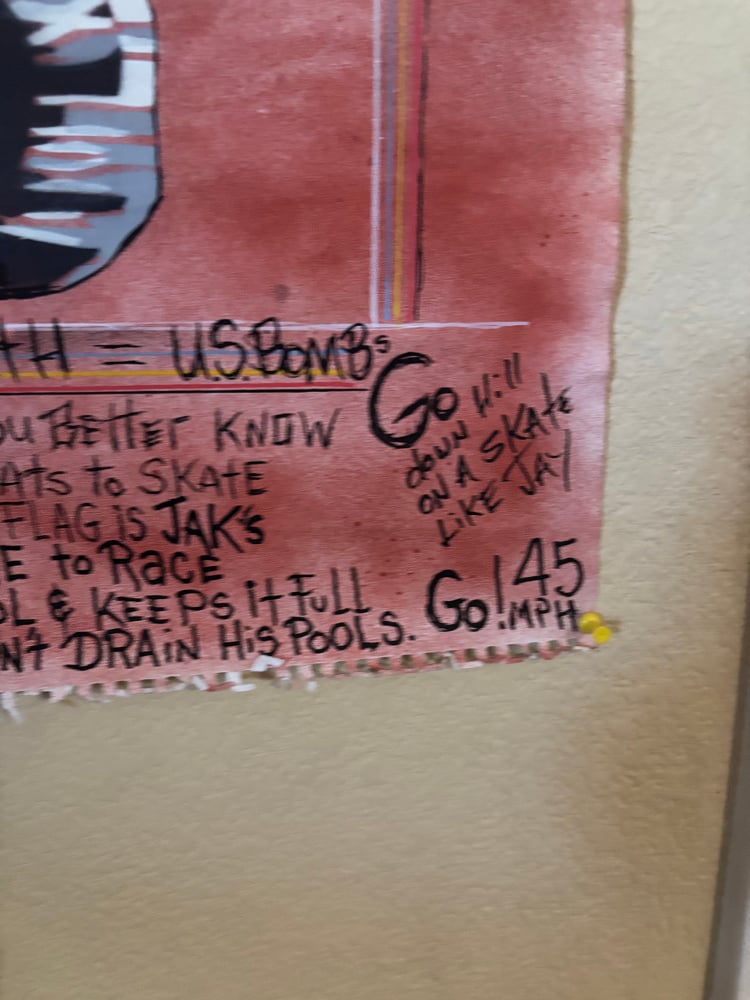 tH = U.S. BOMBs
ou BEttEr KNOW
Ats to SKAtE
FLAG is JAK's
E to RacE
OL & KEEPs it Full
N't DRAiN His POOLS.
Go Hill
down
ON A SKAtE
LiKE JAY
Go! 45
MPH